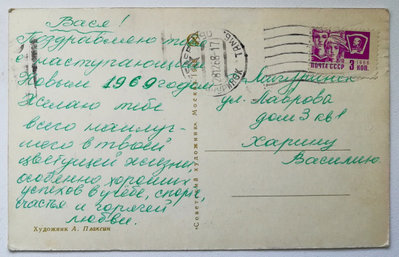 Вася!
Поздравляю тебя
с наступающим
Новым 1969 годом.
Желаю тебе
всего наилуч-
шего в твоей
цветущей жизни
особенно хороших
успехов в учёбе, спорте,
счастья и горячей
любви.
Художник А. Плаксин
«Советский художник» Москва
ПОЧТА СССР 3 КОП.
ул. Лаврова
дом 3 кв 1
Харину
Василию